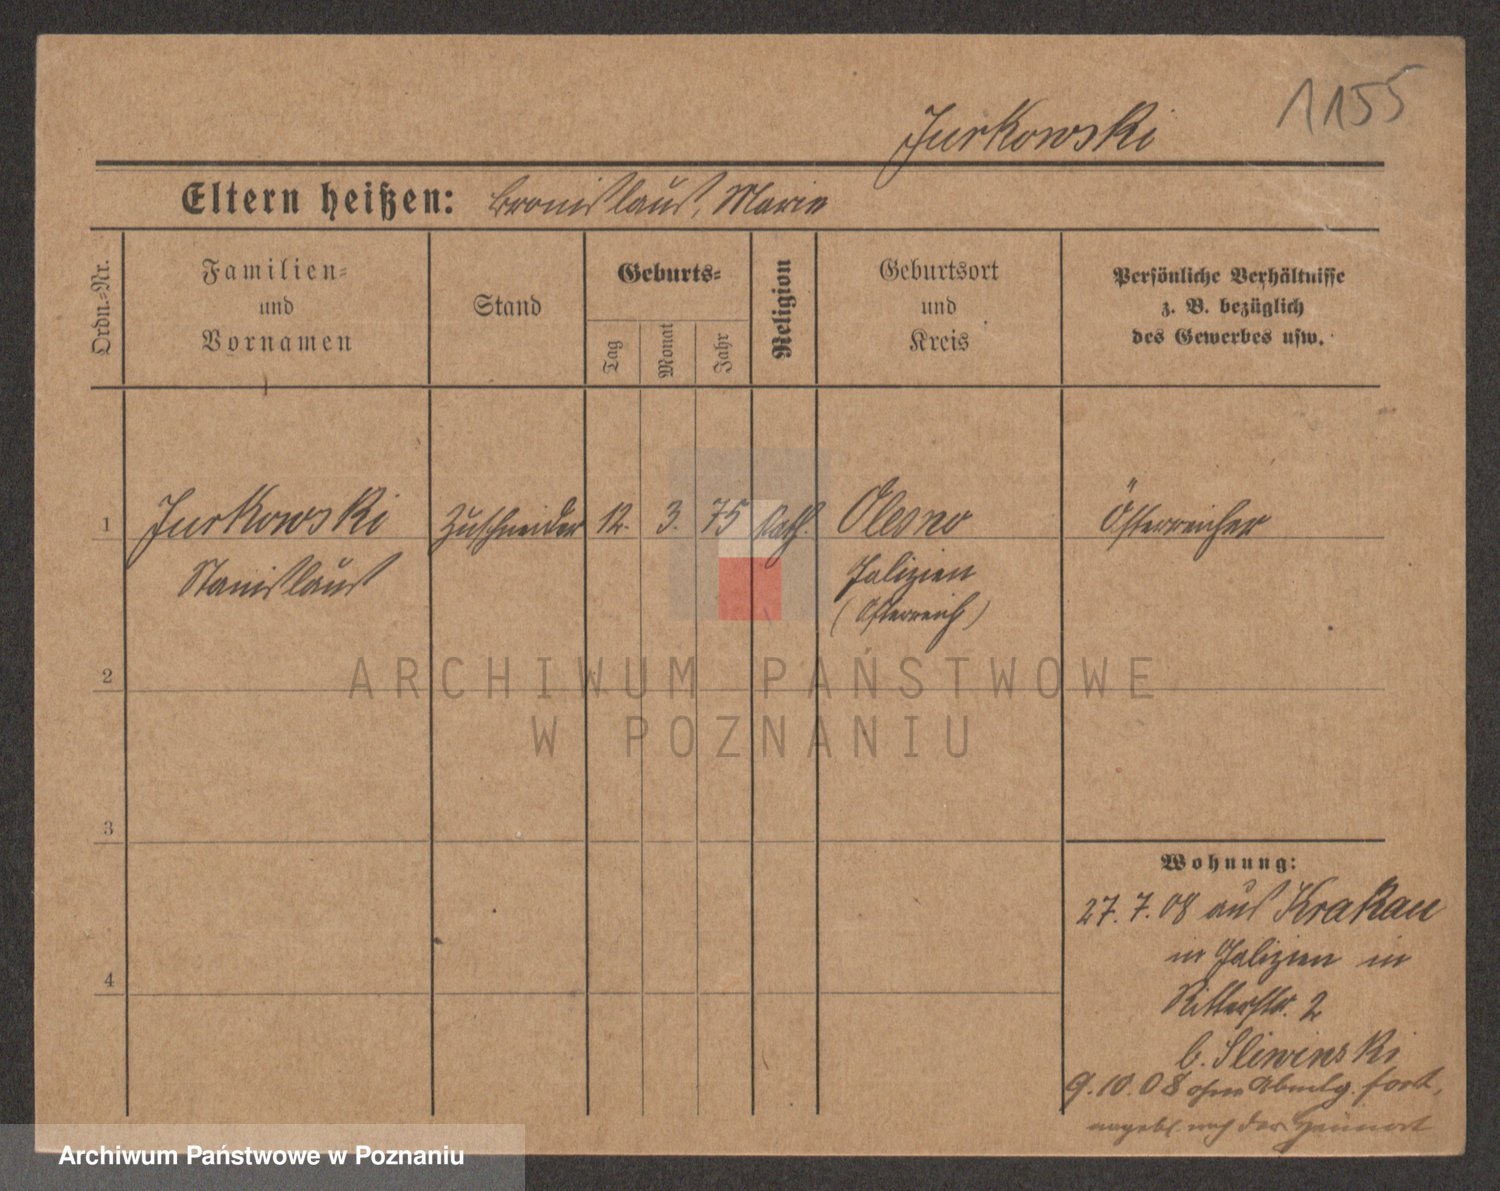 1155
Jurkowski
Eltern heißen: Bronislaus, Marie
Ordn.=Nr.
Familien=
und
Vornamen
Stand
Geburts=
Tag
Monat
Jahr
Religion
Geburtsort
und
Kreis
Persönliche Verhältnisse
z. B. bezüglich
des Gewerbes usw.
1 Jurkowski Zuschneider 12. 3. 75 kath. Olesno Österreicher
Stanislaus Galizien
(Österreich)
2
3
4
Wohnung:
27.7.08 aus Krakau
in Galizien in
Ritterstr. 2
b. Sliwinski
9.10.08 ohne Abmldg. fort,
angebl. nach der Heimat
ARCHIWUM PAŃSTWOWE
W POZNANIU
Archiwum Państwowe w Poznaniu